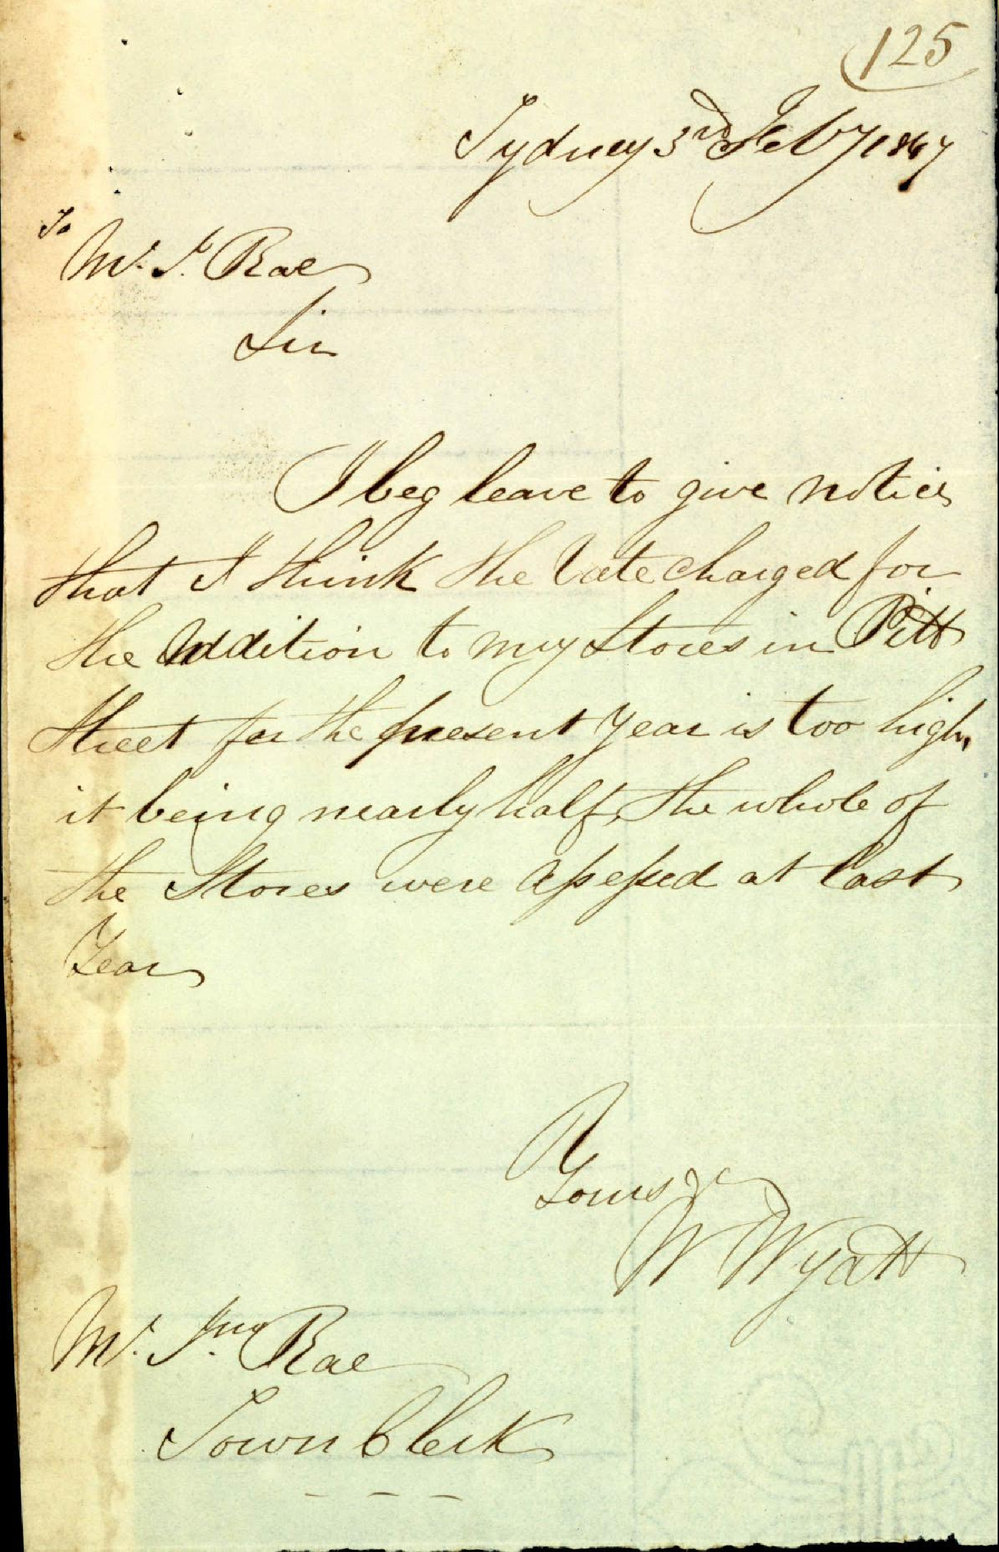 125
Sydney 3rd Feby 1847
To
Mr. J. Rae
Sir
I beg leave to give notice
that I think the rate charged for
the Addition to my Stores in Pitt
Street for the present year is too high,
it being nearly half, the whole of
the Stores were Assessed at last
Year
Yours &c
W Wyatt
Mr. Jno. Rae
Town Clerk